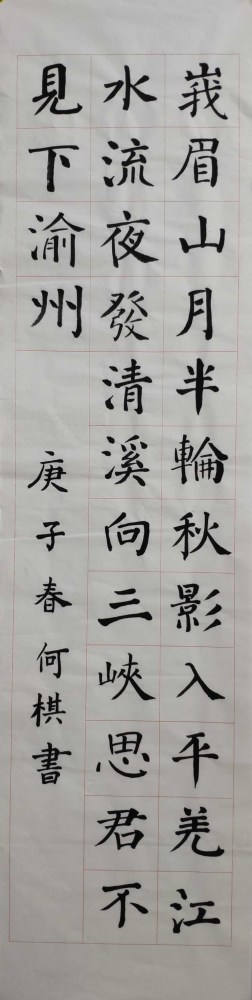 峩眉山月半輪秋影入平羌江
水流夜發清溪向三峽思君不
見下渝州
庚子春何棋書